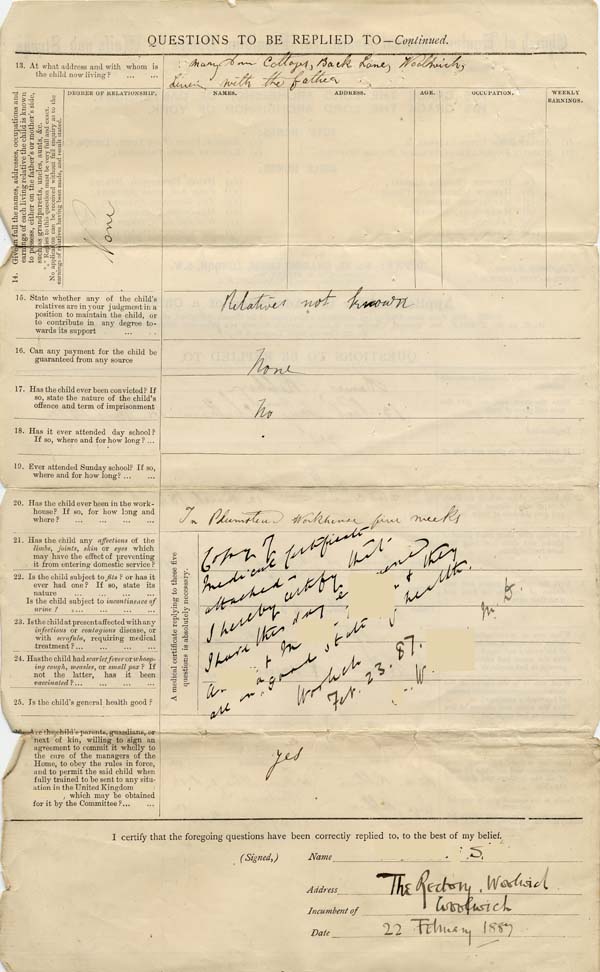 QUESTIONS TO BE REPLIED TO—Continued.
13. At what address and with whom is
the child now living? ... ...
Cottages, Back Lane, Woolwich,
with the father
14. Give in full the names, addresses, occupations and
earnings of each living relative the child is known
to possess, either on the father's or mother's side,
such as grandparents, uncles, aunts, &c.
*** Replies to this question must be very full and exact.
No application can be received without full enquiry as to the
earnings of relatives having been made, and result stated.
DEGREE OF RELATIONSHIP.
NAMES.
ADDRESS.
AGE.
OCCUPATION.
WEEKLY
EARNINGS.
None
15. State whether any of the child's
relatives are in your judgment in a
position to maintain the child, or
to contribute in any degree to-
wards its support ... ...
Relatives not known
16. Can any payment for the child be
guaranteed from any source
None
17. Has the child ever been convicted? If
so, state the nature of the child's
offence and term of imprisonment
No
18. Has it ever attended day school?
If so, where and for how long? ...
19. Ever attended Sunday school? If so,
where and for how long? ... ...
20. Has the child ever been in the work-
house? If so, for how long and
where? ... ... ... ...
In Plumstead Workhouse five weeks
21. Has the child any affections of the
limbs, joints, skin or eyes which
may have the effect of preventing
it from entering domestic service?
22. Is the child subject to fits? or has it
ever had one? If so, state its
nature ... ... ... ...
Is the child subject to incontinence of
urine? ... ... ... ...
23. Is the child at present affected with any
infectious or contagious disease, or
with scrofula, requiring medical
treatment? ... ... ... ...
24. Has the child had scarlet fever or whoop-
ing cough, measles, or small pox? If
not the latter, has it been
vaccinated? ... ... ... ...
25. Is the child's general health good?
A medical certificate replying to these five
questions is absolutely necessary.
Copy of
Medical Certificate
attached
I hereby certify that
I have this day
and they
are in good state of health.
Woolwich
Feb. 23. 87.
26. Are the child's parents, guardians, or
next of kin, willing to sign an
agreement to commit it wholly to
the care of the managers of the
Home, to obey the rules in force,
and to permit the said child when
fully trained to be sent to any situ-
ation in the United Kingdom
, which may be obtained
for it by the Committee? ... ...
yes
I certify that the foregoing questions have been correctly replied to, to the best of my belief.
(Signed,) Name S.
Address The Rectory, Woolwich
Incumbent of Woolwich
Date 22 February 1887